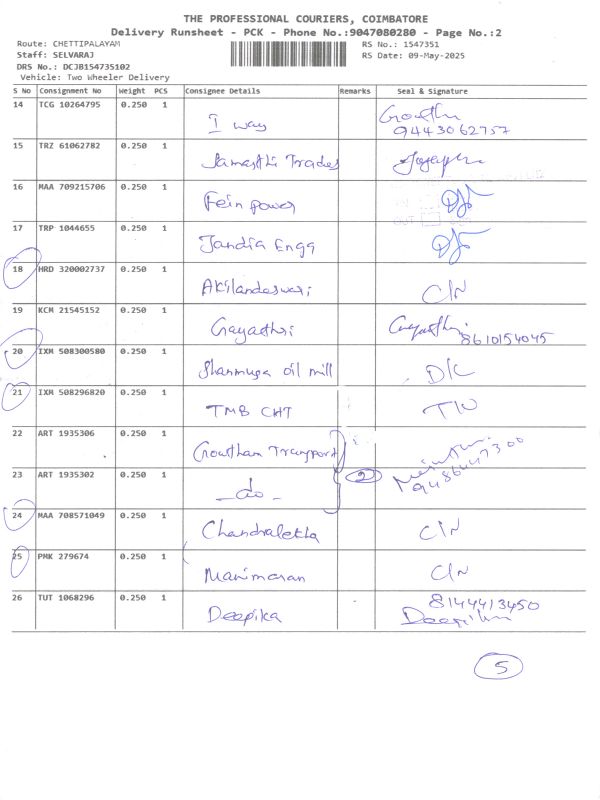 THE PROFESSIONAL COURIERS, COIMBATORE
Delivery Runsheet - PCK - Phone No.:9047080280 - Page No.:2
Route: CHETTIPALAYAM RS No.: 1547351
Staff: SELVARAJ RS Date: 09-May-2025
DRS No.: DCJB154735102
Vehicle: Two Wheeler Delivery
S No Consignment No Weight PCS Consignee Details Remarks Seal & Signature
14 TCG 10264795 0.250 1 I way Gowtham 9443062757
15 TRZ 61062782 0.250 1 Traders
16 MAA 709215706 0.250 1 Fein power
17 TRP 1044655 0.250 1 Jandia Engg
18 HRD 320002737 0.250 1 Akilandeswari C/N
19 KCM 21545152 0.250 1 Gayathri Gayathri 8610154045
20 IXM 508300580 0.250 1 Shanmuga oil mill D/C
21 IXM 508296820 0.250 1 TMB CHT
22 ART 1935306 0.250 1 Gowtham Transport
23 ART 1935302 0.250 1 -do- 2 9486447300
24 MAA 708571049 0.250 1 Chandralekha C/N
25 PMK 279674 0.250 1 Manimaran C/N
26 TUT 1068296 0.250 1 Deepika 8144413450 Deepika
5